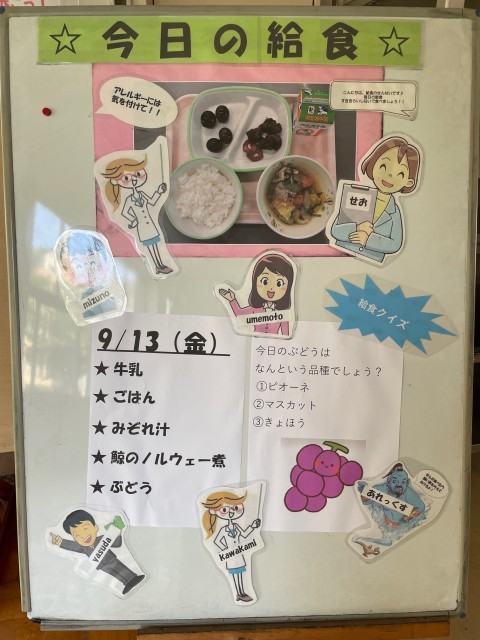 ☆今日の給食☆
アレルギーには
気を付けて！！
せお
mizuno
umemoto
給食クイズ
9/13（金）
★ 牛乳
★ ごはん
★ みぞれ汁
★ 鯨のノルウェー煮
★ ぶどう
今日のぶどうは
なんという品種でしょう？
①ピオーネ
②マスカット
③きょほう
yasuda
kawakami
あれっくす